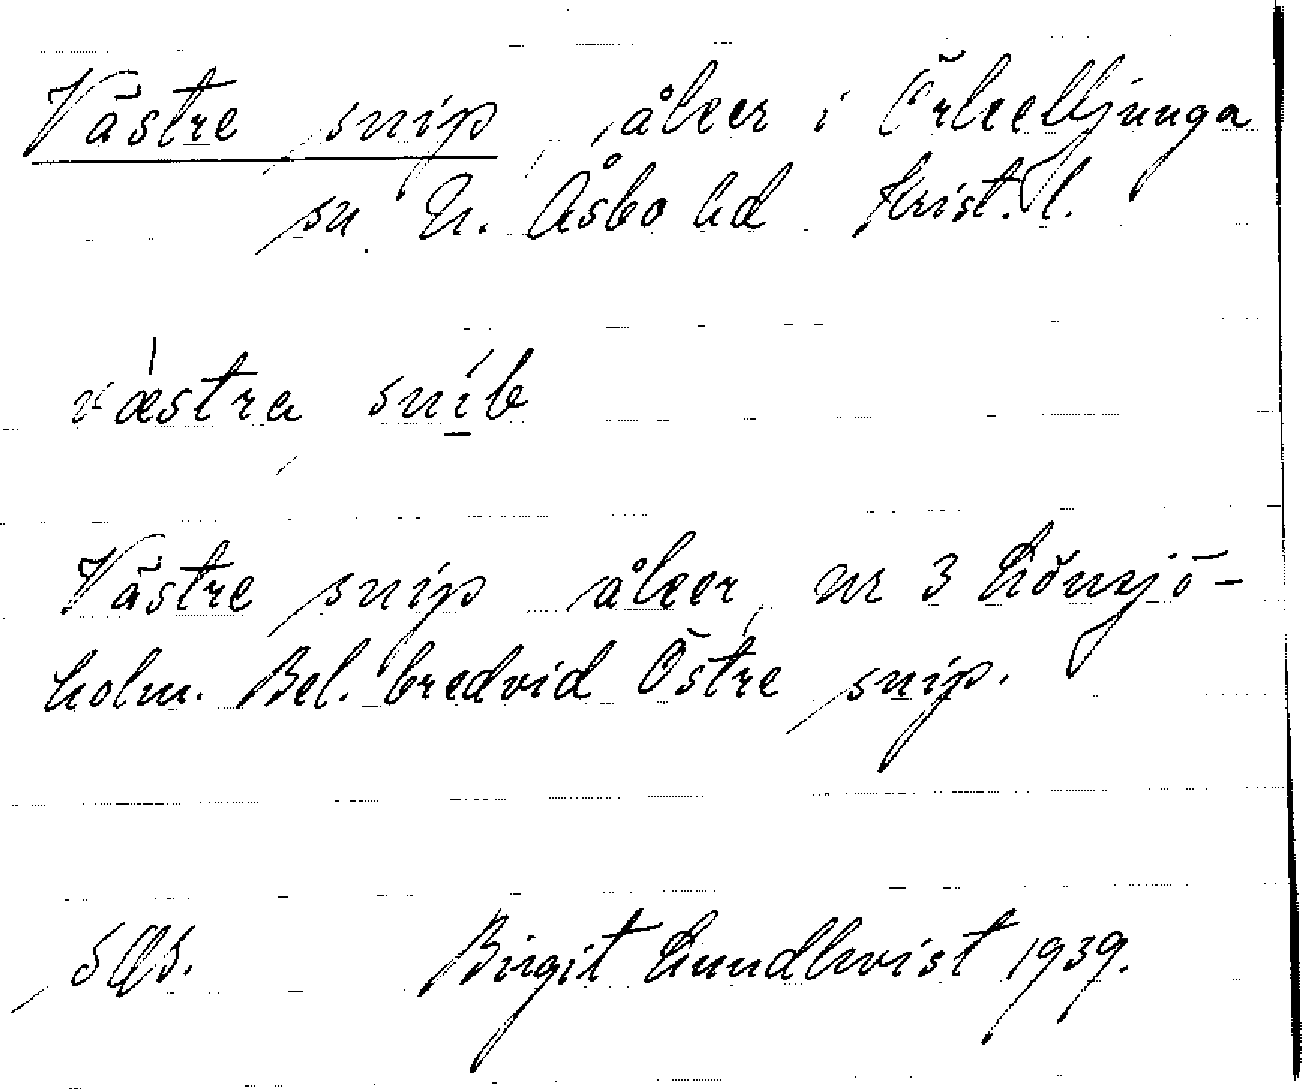 Västre snip, åker i Örkelljunga
sn N. Åsbo hd Krist. l.
væstra snib
Västre snip åker, nr 3 Lönsjö-
holm. Bel. bredvid Östre snip.
Birgit Lundkvist 1939.